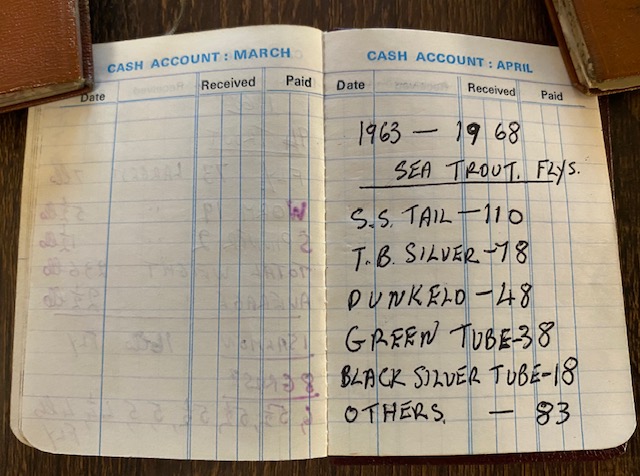 CASH ACCOUNT : MARCH
Date Received Paid
CASH ACCOUNT : APRIL
Date Received Paid
1963 — 1968
SEA TROUT. FLYS.
S.S. TAIL — 110
T.B. SILVER — 78
DUNKELD — 48
GREEN TUBE - 38
BLACK SILVER TUBE - 18
OTHERS. — 83